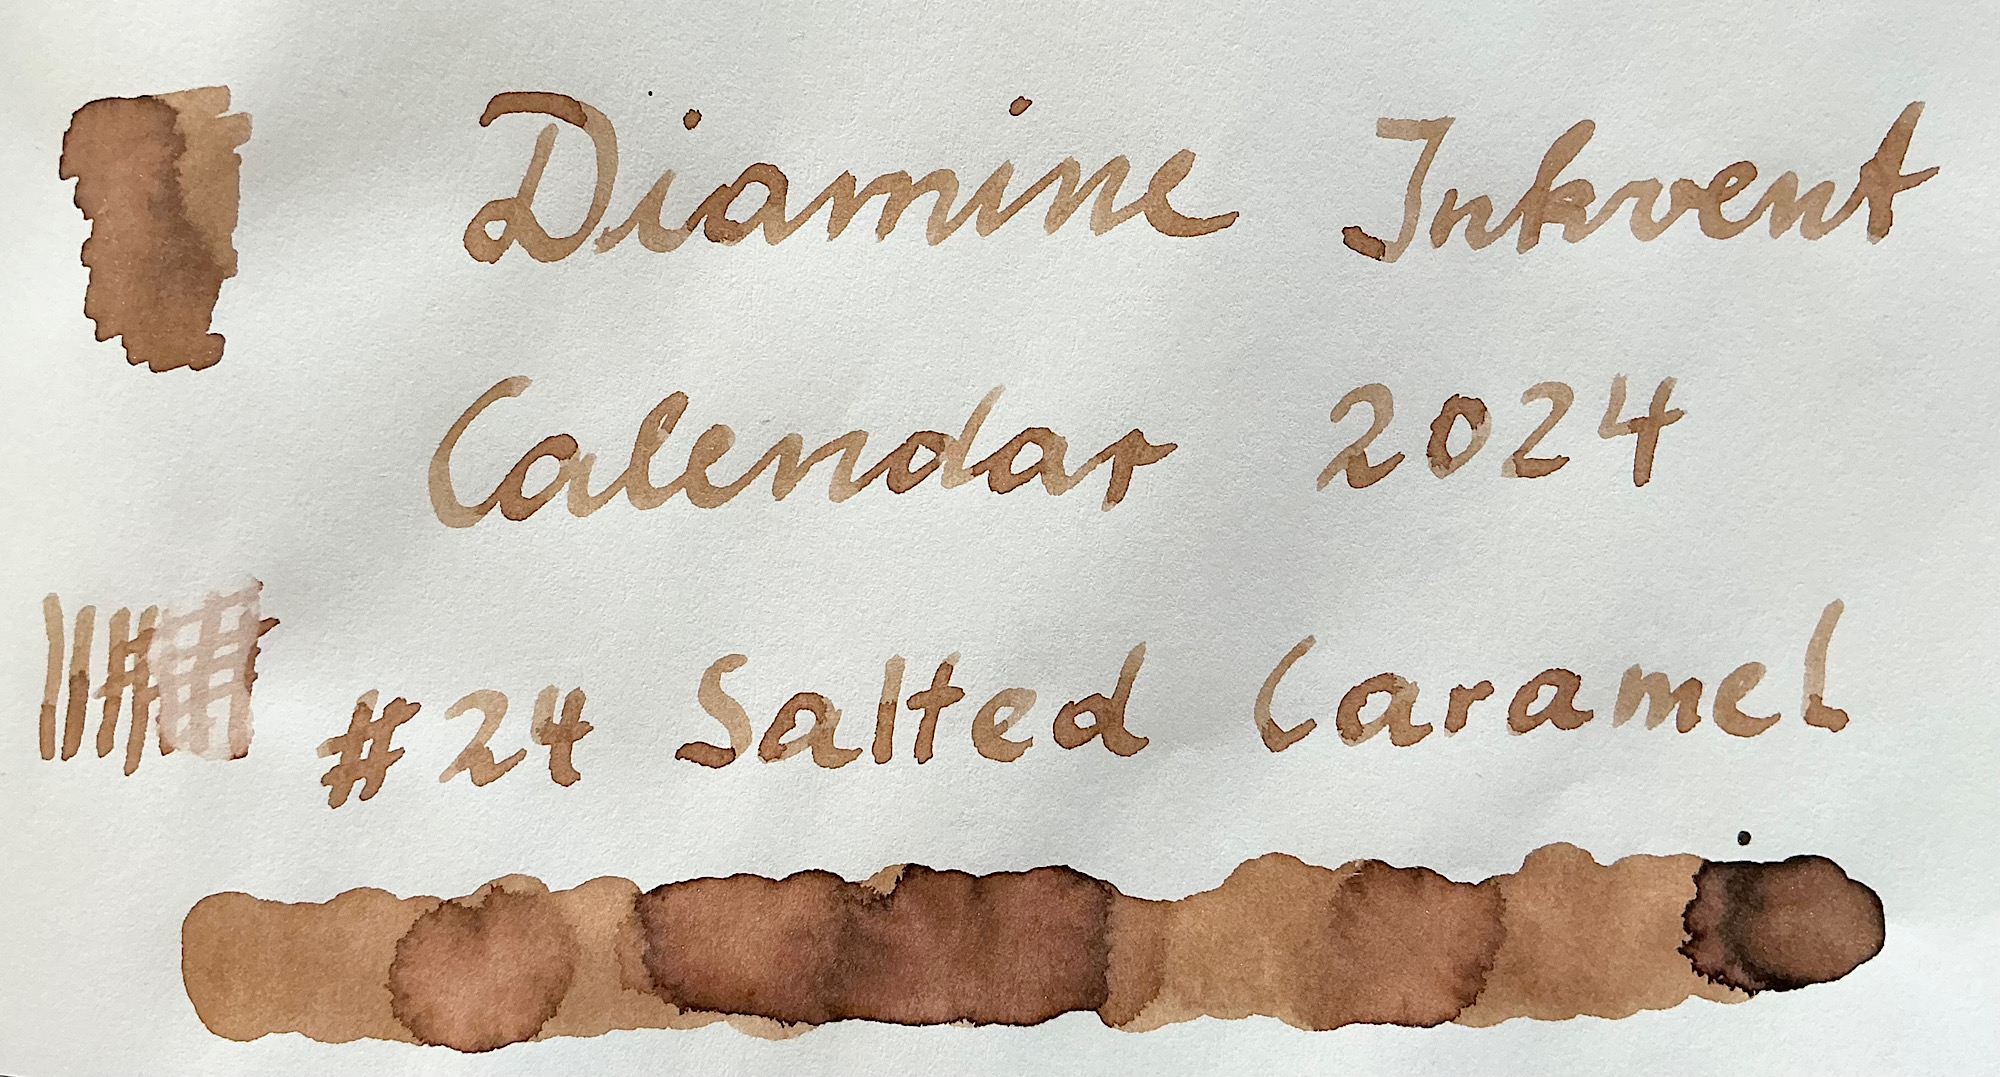 Diamine Inkvent
Calendar 2024
#24 Salted Caramel